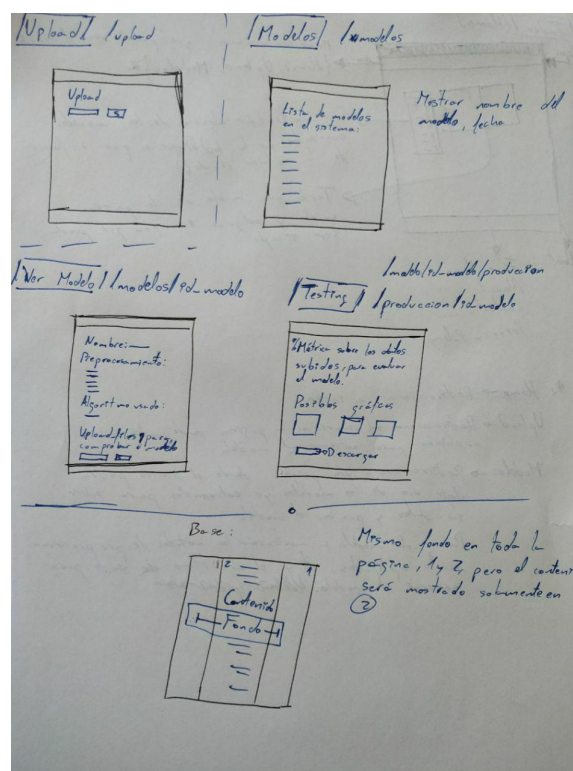 Upload /upload
Upload
Modelos /modelos
Lista de modelos
en el sistema:
Mostrar nombre del
modelo, fecha
Ver Modelo /modelos/id_modelo
Nombre:
Preprocesamiento:
Algoritmo usado:
Upload files para
comprobar modelo
/modelo/id_modelo/produccion
Testing /produccion/id_modelo
Métrica sobre los datos
subidos, para evaluar
el modelo.
Posibles gráficas
Descargar
Base:
2 1
Contenido
Fondo
Mismo fondo en toda la
página, 1 y 2, pero el conteni
será mostrado solamente en
2